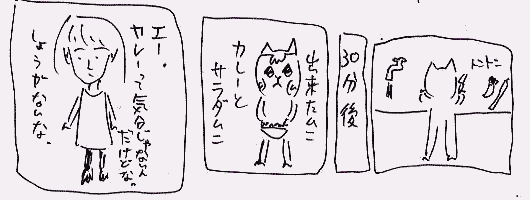 トントン
30分後
出来たムニ
カレーと
サラダムニ
エー。
カレーって気分じゃないん
だけどな。
しょうがないな。